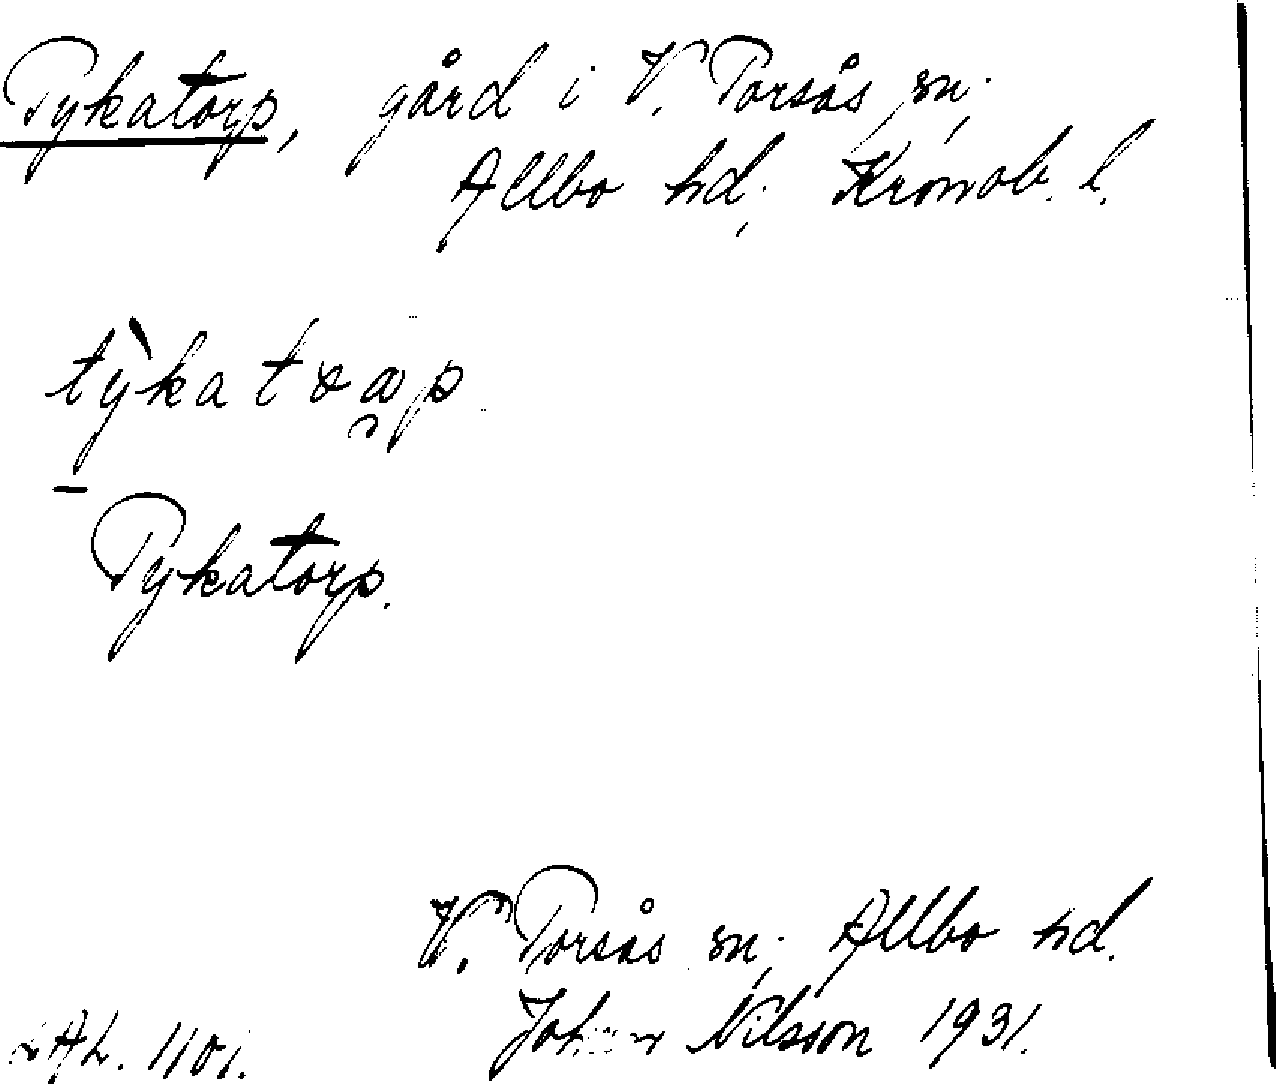 Tykatorp, gård i V. Torsås sn.,
Allbo hd., Kronob. l.
tỳkatɷrp
Tykatorp.
V. Torsås sn., Allbo hd.
Johan Nilsson 1931.
LAL. 1101.